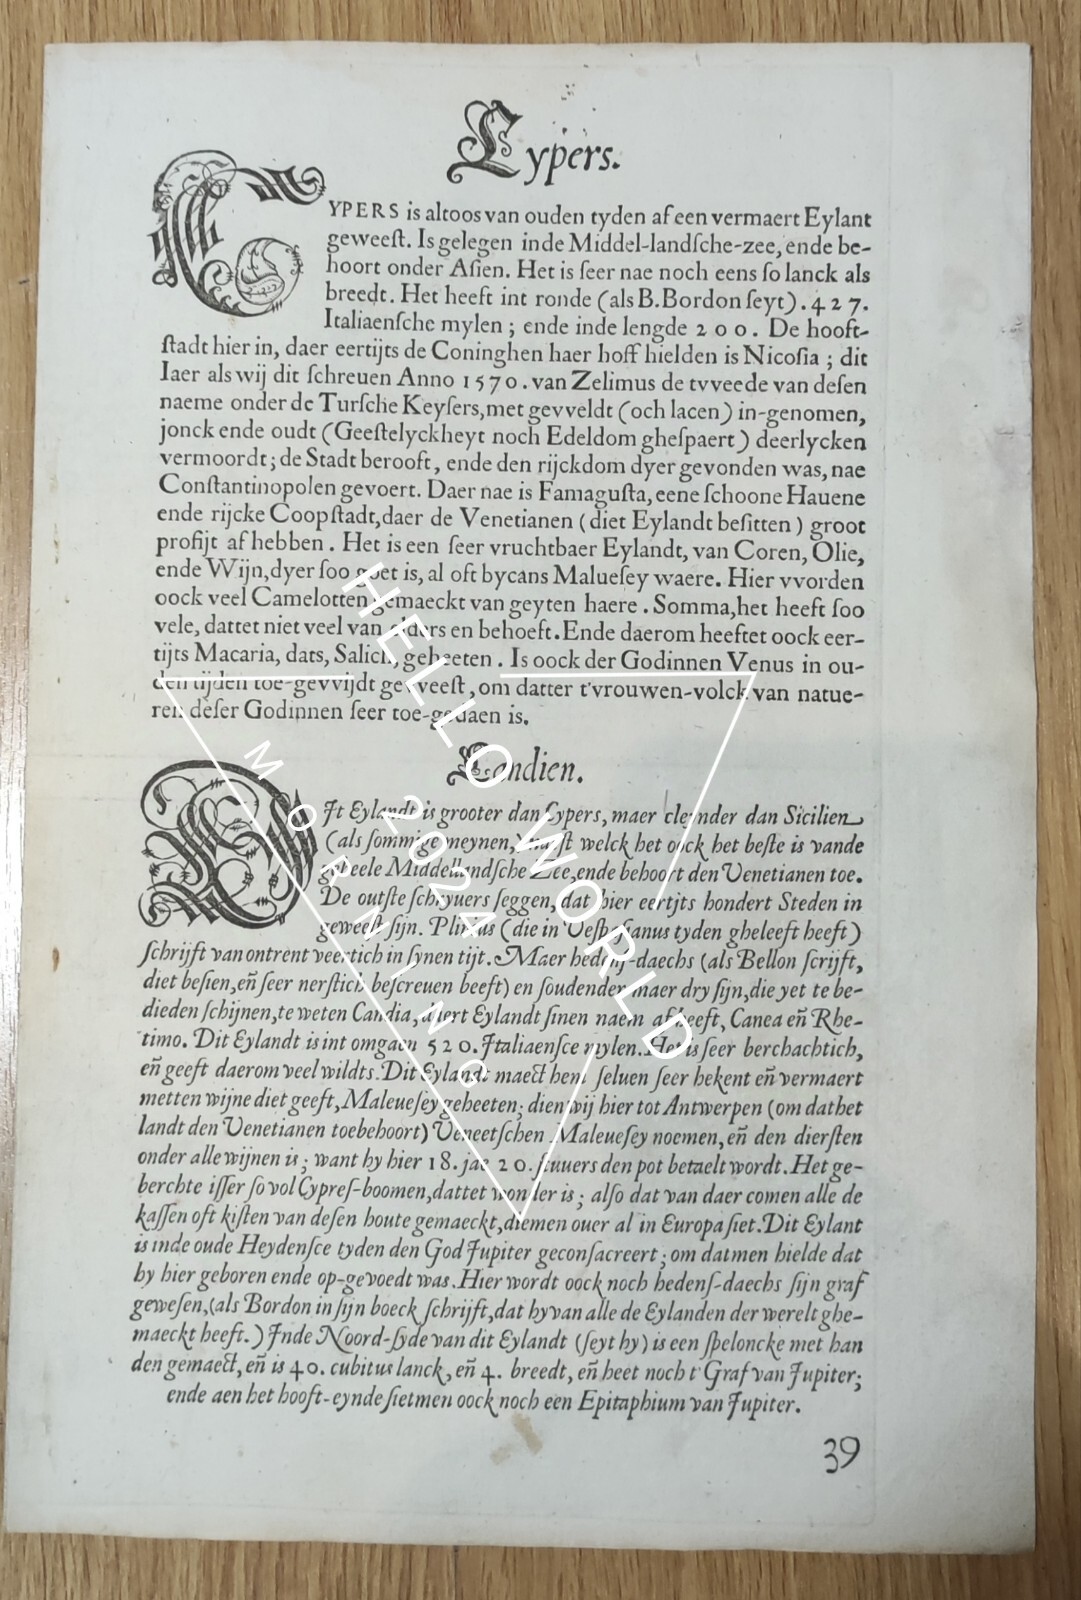 Cypers.
CYPERS is altoos van ouden tyden af een vermaert Eylant
geweeſt. Is gelegen inde Middel-landſche-zee, ende be-
hoort onder Aſien. Het is ſeer nae noch eens ſo lanck als
breedt. Het heeft int ronde (als B. Bordon ſeyt). 427.
Italiaenſche mylen; ende inde lengde 200. De hooft-
ſtadt hier in, daer eertijts de Coninghen haer hoff hielden is Nicoſia; dit
Iaer als wij dit ſchreuen Anno 1570. van Zelimus de tvveede van deſen
naeme onder de Turſche Keyſers, met gevveldt (och lacen) in-genomen,
jonck ende oudt (Geeſtelyckheyt noch Edeldom gheſpaert) deerlycken
vermoordt; de Stadt berooft, ende den rijckdom dyer gevonden was, nae
Conſtantinopolen gevoert. Daer nae is Famaguſta, eene ſchoone Hauene
ende rijcke Coopſtadt, daer de Venetianen (diet Eylandt beſitten) groot
profijt af hebben. Het is een ſeer vruchtbaer Eylandt, van Coren, Olie,
ende Wijn, dyer ſoo goet is, al oft bycans Malueſey waere. Hier vvorden
oock veel Camelotten gemaeckt van geyten haere. Somma, het heeft ſoo
vele, dattet niet veel van elders en behoeft. Ende daerom heeftet oock eer-
tijts Macaria, dats, Salich, geheeten. Is oock der Godinnen Venus in ou-
den tijden toe-gevvijdt gevveeſt, om datter t'vrouwen-volck van natue-
ren deſer Godinnen ſeer toe-gedaen is.
Candien.
DIt Eylandt is grooter dan Cypers, maer cleynder dan Sicilien
(als ſommige meynen,) naeſt welck het oock het beſte is vande
geheele Middellandſche Zee, ende behoort den Venetianen toe.
De outſte ſchryuers ſeggen, dat hier eertjts hondert Steden in
geweeſt ſijn. Plinius (die in Veſpaſianus tyden gheleeft heeft)
ſchrijft van ontrent veertich in ſynen tijt. Maer hedenſ-daechs (als Bellon ſcrijft,
diet beſien, eñ ſeer nerſtich beſcreuen heeft) en ſoudender maer dry ſijn, die yet te be-
dieden ſchijnen, te weten Candia, daert Eylandt ſinen naem af heeft, Canea eñ Rhe-
timo. Dit Eylandt is int omgaen 520. Italiaenſce mylen. Het is ſeer berchachtich,
eñ geeft daerom veel wildts. Dit Eylandt maect hem ſeluen ſeer bekent eñ vermaert
metten wijne diet geeft, Maleueſey geheeten; dien wij hier tot Antwerpen (om dat het
landt den Venetianen toebehoort) Veneetſchen Maleueſey noemen, eñ den dierſten
onder alle wijnen is; want hy hier 18. jae 20. ſtuuers den pot betaelt wordt. Het ge-
berchte iſſer ſo vol Cypreſ-boomen, dattet wonder is; alſo dat van daer comen alle de
kaſſen oft kiſten van deſen houte gemaeckt, diemen ouer al in Europa ſiet. Dit Eylant
is inde oude Heydenſce tyden den God Jupiter geconſacreert; om datmen hielde dat
hy hier geboren ende op-gevoedt was. Hier wordt oock noch hedenſ-daechs ſijn graf
geweſen, (als Bordon in ſijn boeck ſchrijft, dat hy van alle de Eylanden der werelt ghe-
maeckt heeft.) Inde Noord-ſyde van dit Eylandt (ſeyt hy) is een ſpeloncke met han
den gemaect, eñ is 40. cubitus lanck, eñ 4. breedt, eñ heet noch t'Graf van Jupiter;
ende aen het hooft-eynde ſietmen oock noch een Epitaphium van Jupiter.
39
HELLO WORLD
2024
MORNING